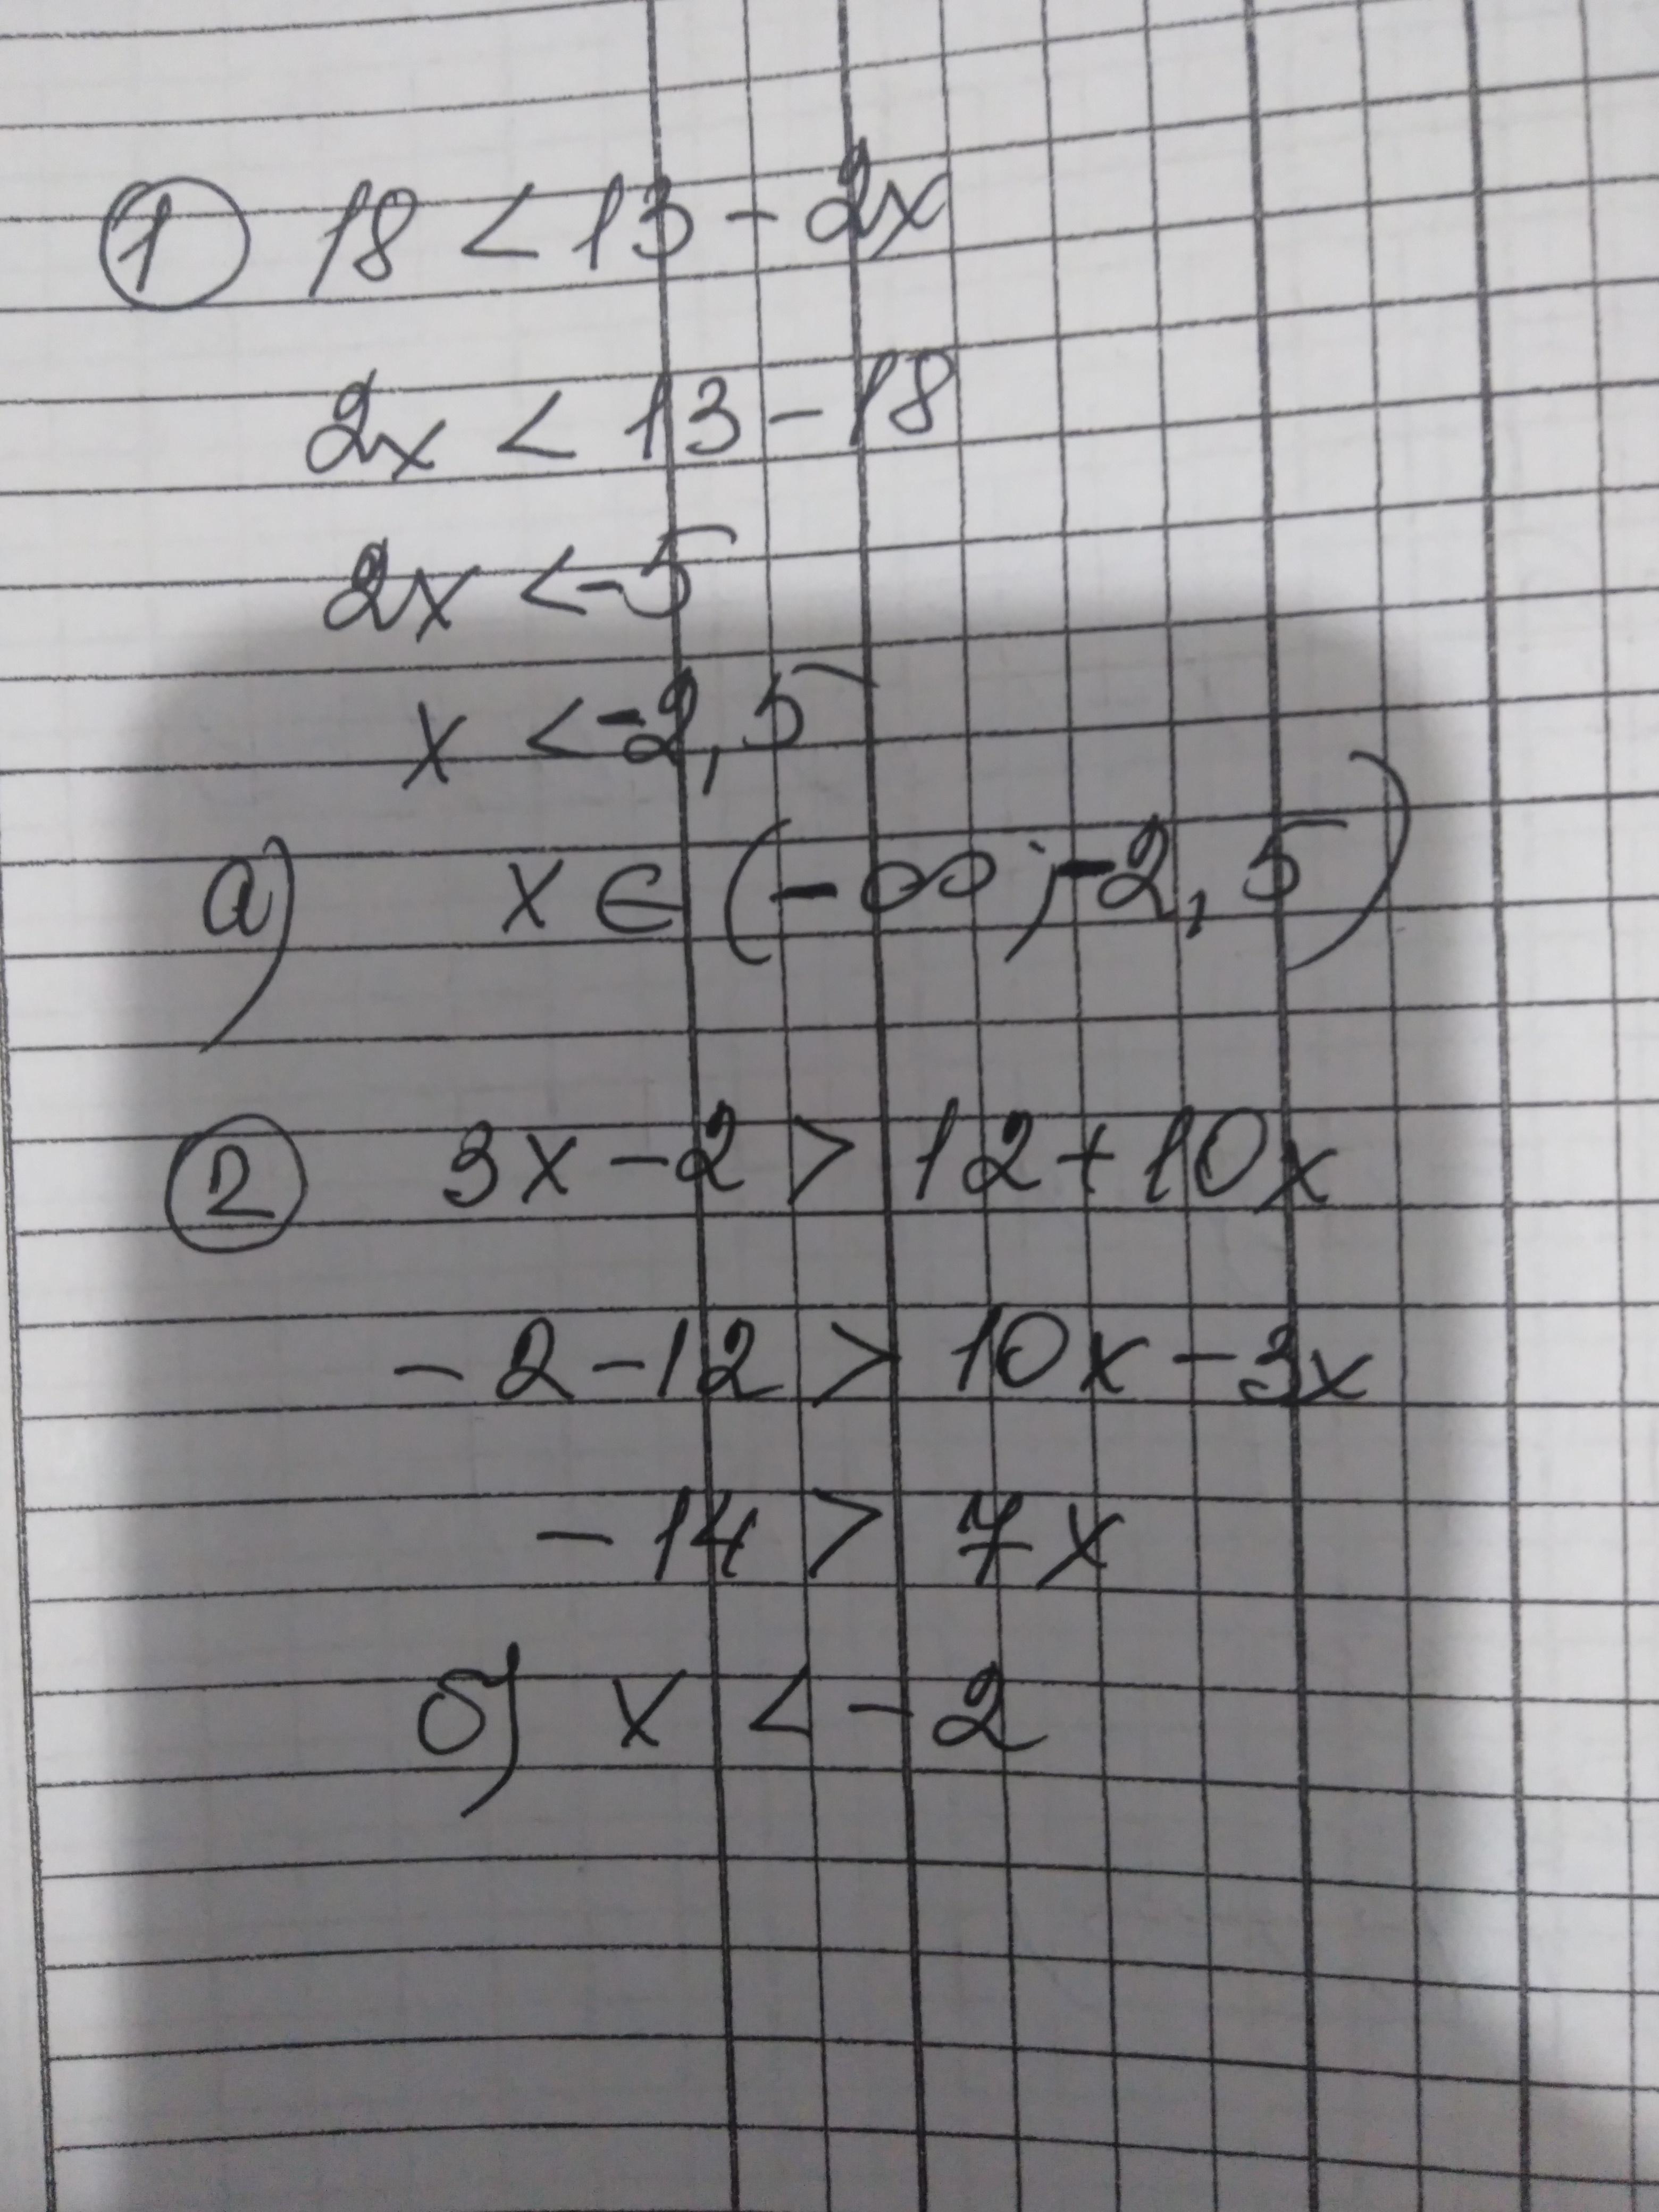 1 18 < 13 - 2x
2x < 13 - 18
2x < -5
x < -2,5
а) x ∈ (-∞; -2,5)
2 3x - 2 > 12 + 10x
- 2 - 12 > 10x - 3x
- 14 > 7x
б) x < - 2